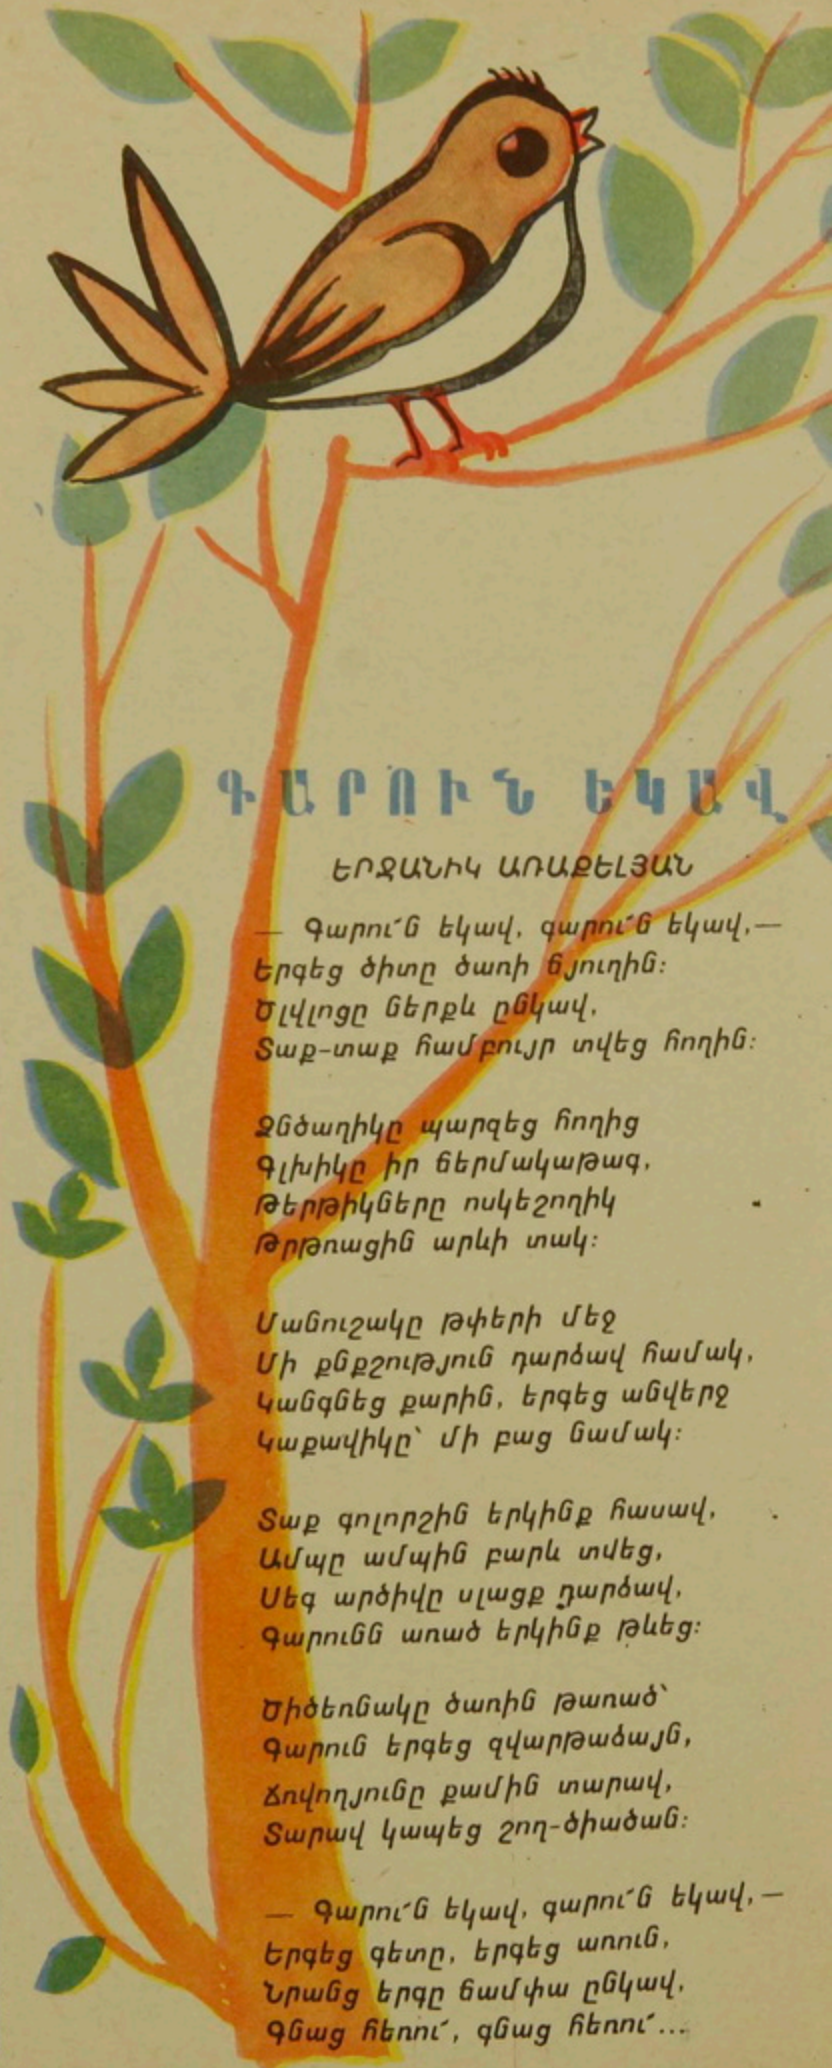 ԳԱՐՈՒՆ ԵԿԱՎ
ԵՐՋԱՆԻԿ ԱՌԱՔԵԼՅԱՆ
— Գարո՜ւն եկավ, գարո՜ւն եկավ,—
Երգեց ծիտը ծառի ճյուղին։
Ծլվլոցը ներքև ընկավ,
Տաք-տաք համբույր տվեց հողին։
Ձնծաղիկը պարզեց հողից
Գլխիկը իր ճերմակաթագ,
Թերթիկները ոսկեշողիկ
Թրթռացին արևի տակ։
Մանուշակը թփերի մեջ
Մի քնքշություն դարձավ համակ,
Կանգնեց քարին, երգեց անվերջ
Կաքավիկը՝ մի բաց նամակ։
Տաք գոլորշին երկինք հասավ,
Ամպը ամպին բարև տվեց,
Սեգ արծիվը սլացք դարձավ,
Գարունն առած երկինք թևեց։
Ծիծեռնակը ծառին թառած՝
Գարուն երգեց զվարթաձայն,
Ճովողյունը քամին տարավ,
Տարավ կապեց շող-ծիածան։
— Գարո՜ւն եկավ, գարո՜ւն եկավ,—
Երգեց գետը, երգեց առուն,
Նրանց երգը ճամփա ընկավ,
Գնաց հեռո՜ւ, գնաց հեռո՜ւ...